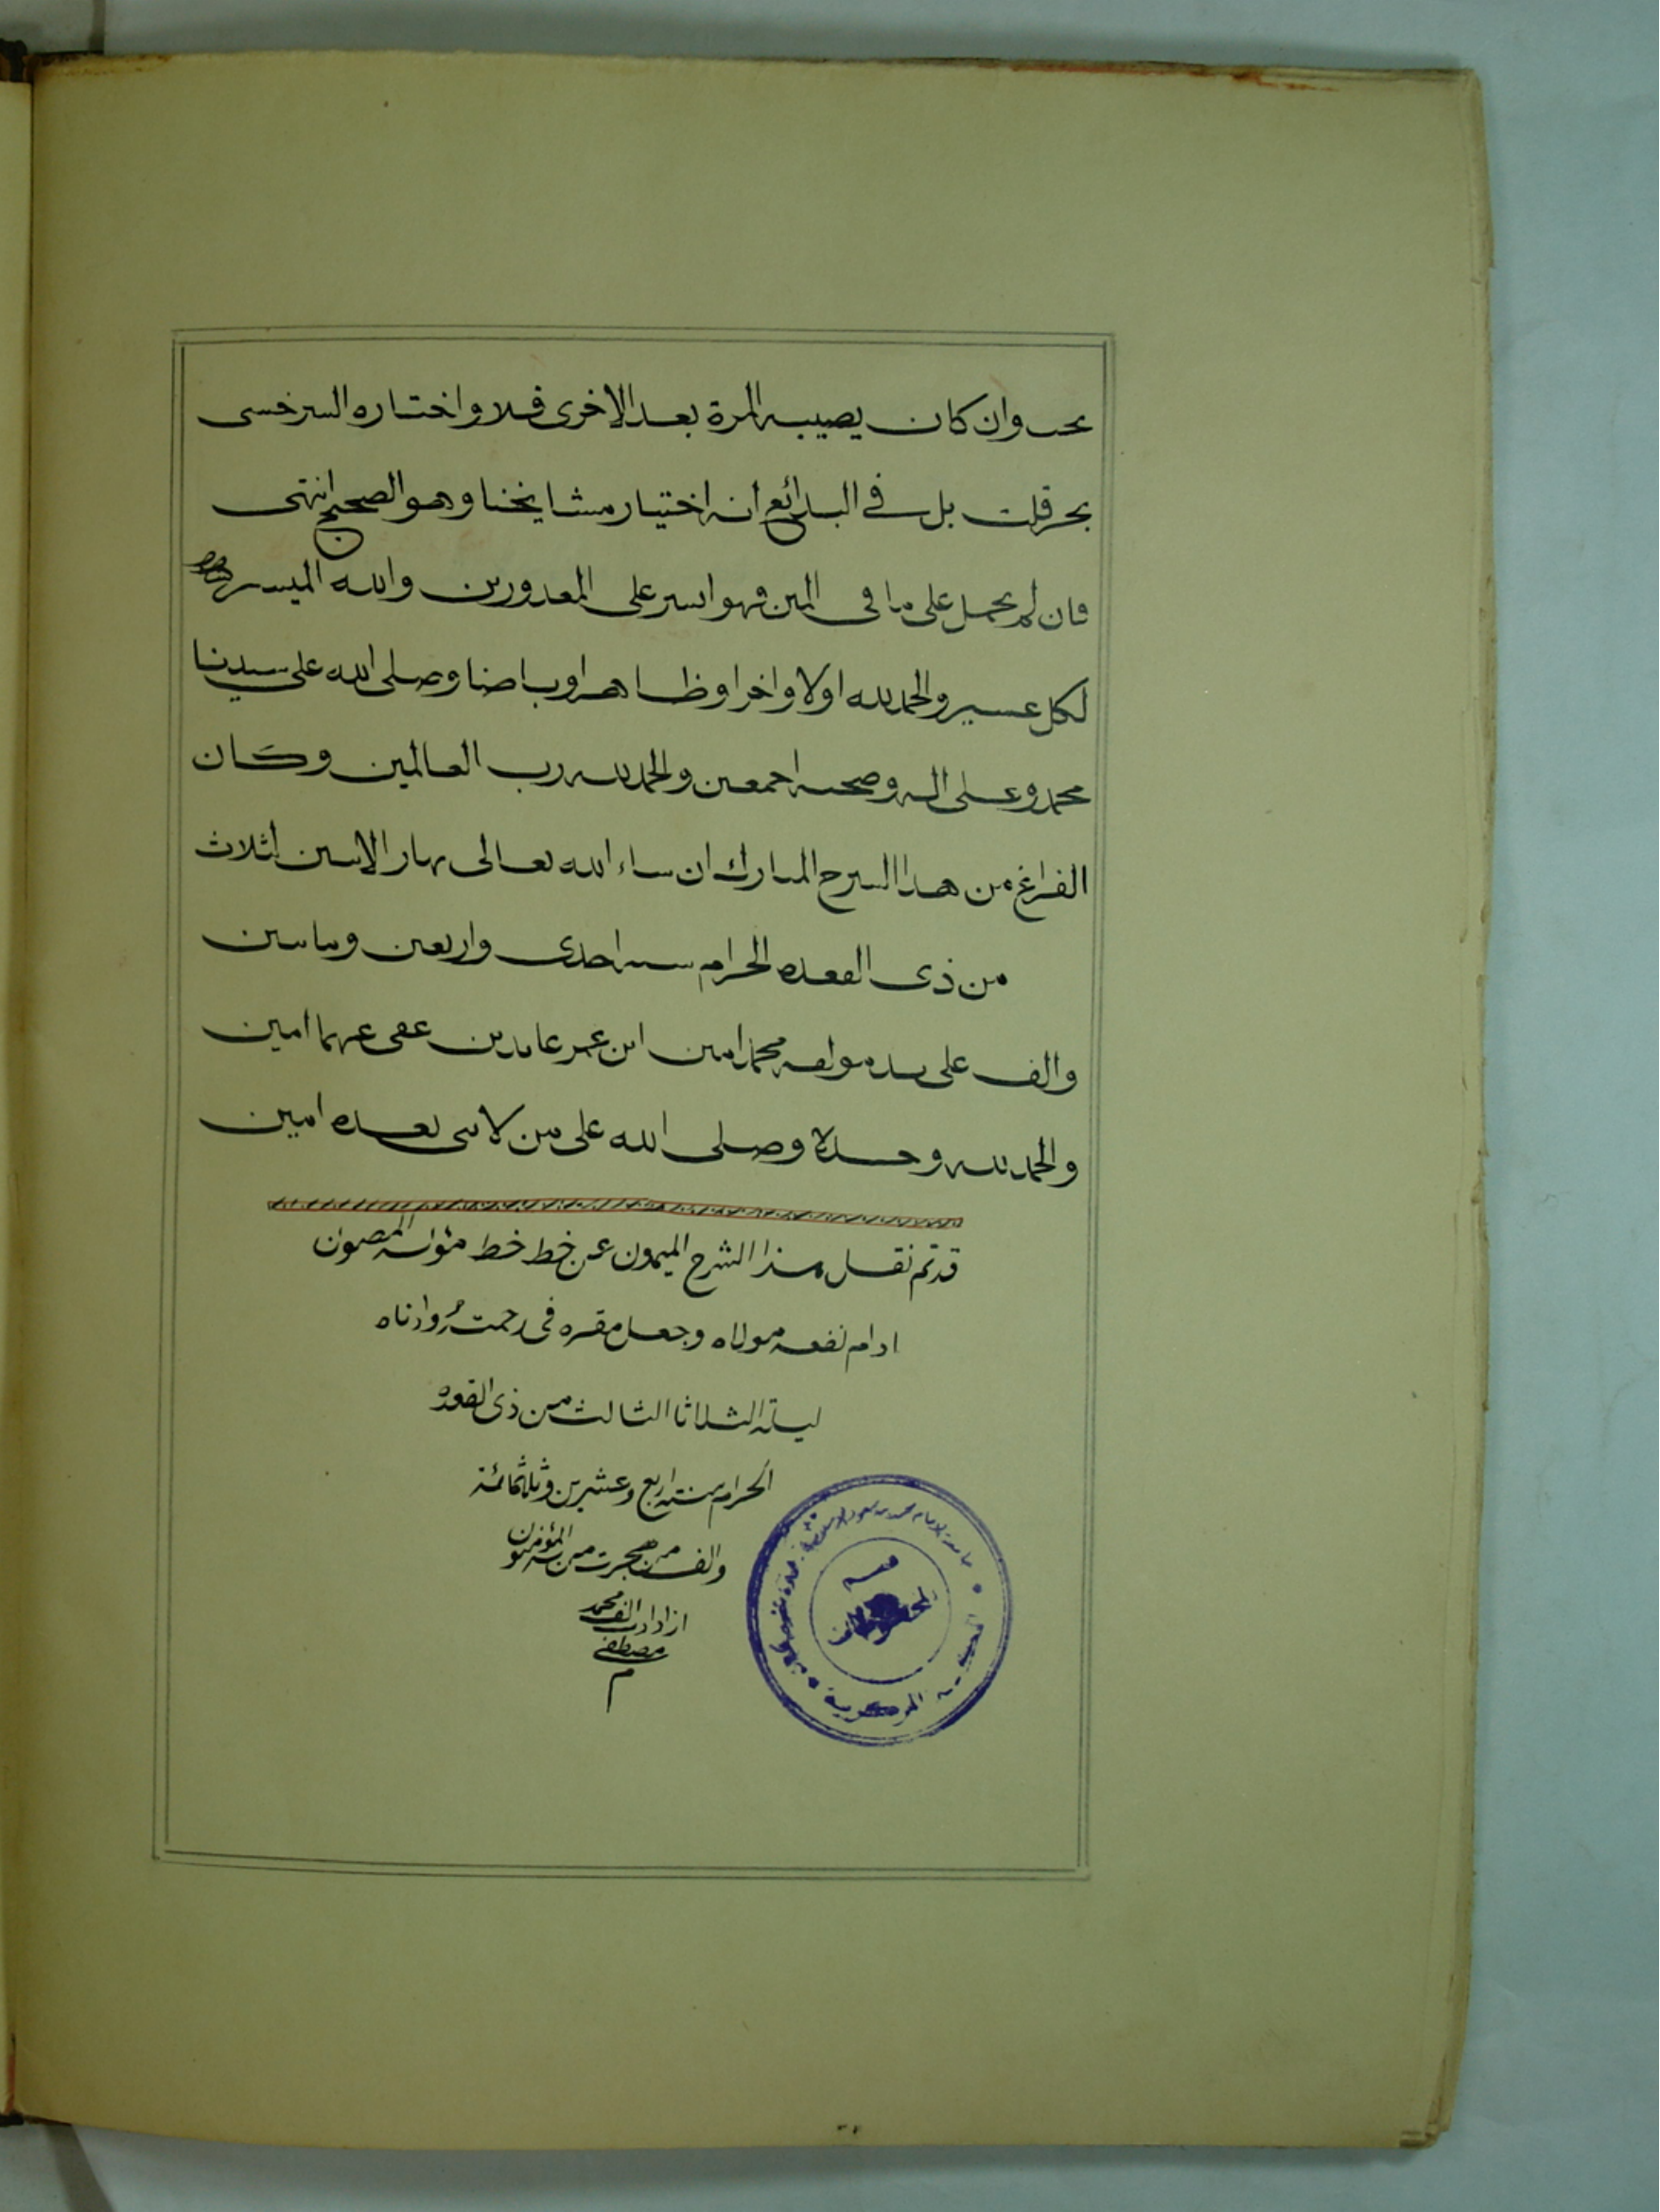 يجب وان كان يصيبه المرة بعد الاخرى فلا واختاره السرخسى
بحر قلت بل فى البدائع انه اختيار مشايخنا وهو الصحيح انتهى
فان لم يحمل على ما فى المتن فهو ايسر على المعذورين والله الميسر
لكل عسير والحمد لله اولا واخرا وظاهرا وباضنا وصلى الله على سيدنا
محمد وعلى اله وصحبه اجمعين والحمد لله رب العالمين وكان
الفراغ من هذا الشرح المبارك ان شاء الله تعالى نهار الاثنين لثلاث
من ذى القعده الحرام سنه احدى واربعين ومائتين
والف على يد مولفه محمد امين ابن عمر عابدين عفى عنهما امين
والحمد لله وحده وصلى الله على من لا نبى بعده امين
قد تم نقل هذا الشرح الميمون عن خط خط مؤلفه المصون
ادام نفعه مولاه وجعل مقره فى رحمته وادناه
ليلة الثلاثا الثالث من ذى القعده
الحرام سنة اربع وعشرين وثلاثمائة
والف من هجرت من به المؤمنون
محمد
مصطفى
م
جامعة الامام محمد بن سعود الاسلامية
المكتبة المركزية
قسم
المخطوطات